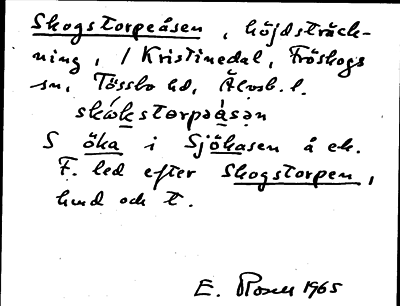 Skogstorpeåsen, höjdsträck-
ning, / Kristinedal, Fröskogs
sn, Tössbo hd, Älvsb. l.
skókstorpəàsən
S öka i Sjökasen å ek.
F. led efter Skogstorpen,
hmd och t.
E. 1965